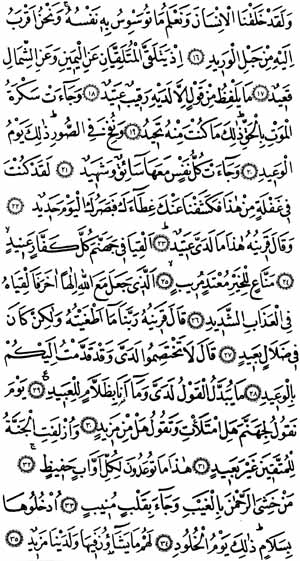 ولقد خلقنا الانسان ونعلم ما توسوس به نفسه ونحن اقرب
اليه من حبل الوريد ١٦ اذ يتلقى المتلقيان عن اليمين وعن الشمال
قعيد ١٧ ما يلفظ من قول الا لديه رقيب عتيد ١٨ وجاءت سكرة
الموت بالحق ذلك ما كنت منه تحيد ١٩ ونفخ في الصور ذلك يوم
الوعيد ٢٠ وجاءت كل نفس معها سائق وشهيد ٢١ لقد كنت
في غفلة من هذا فكشفنا عنك غطاءك فبصرك اليوم حديد ٢٢
وقال قرينه هذا ما لدي عتيد ٢٣ القيا في جهنم كل كفار عنيد
٢٤ مناع للخير معتد مريب ٢٥ الذي جعل مع الله الها اخر فالقياه
في العذاب الشديد ٢٦ قال قرينه ربنا ما اطغيته ولكن كان
في ضلال بعيد ٢٧ قال لا تختصموا لدي وقد قدمت اليكم
بالوعيد ٢٨ ما يبدل القول لدي وما انا بظلام للعبيد ٢٩ يوم
نقول لجهنم هل امتلات وتقول هل من مزيد ٣٠ وازلفت الجنة
للمتقين غير بعيد ٣١ هذا ما توعدون لكل اواب حفيظ ٣٢
من خشي الرحمن بالغيب وجاء بقلب منيب ٣٣ ادخلوها
بسلام ذلك يوم الخلود ٣٤ لهم ما يشاؤن فيها ولدينا مزيد ٣٥